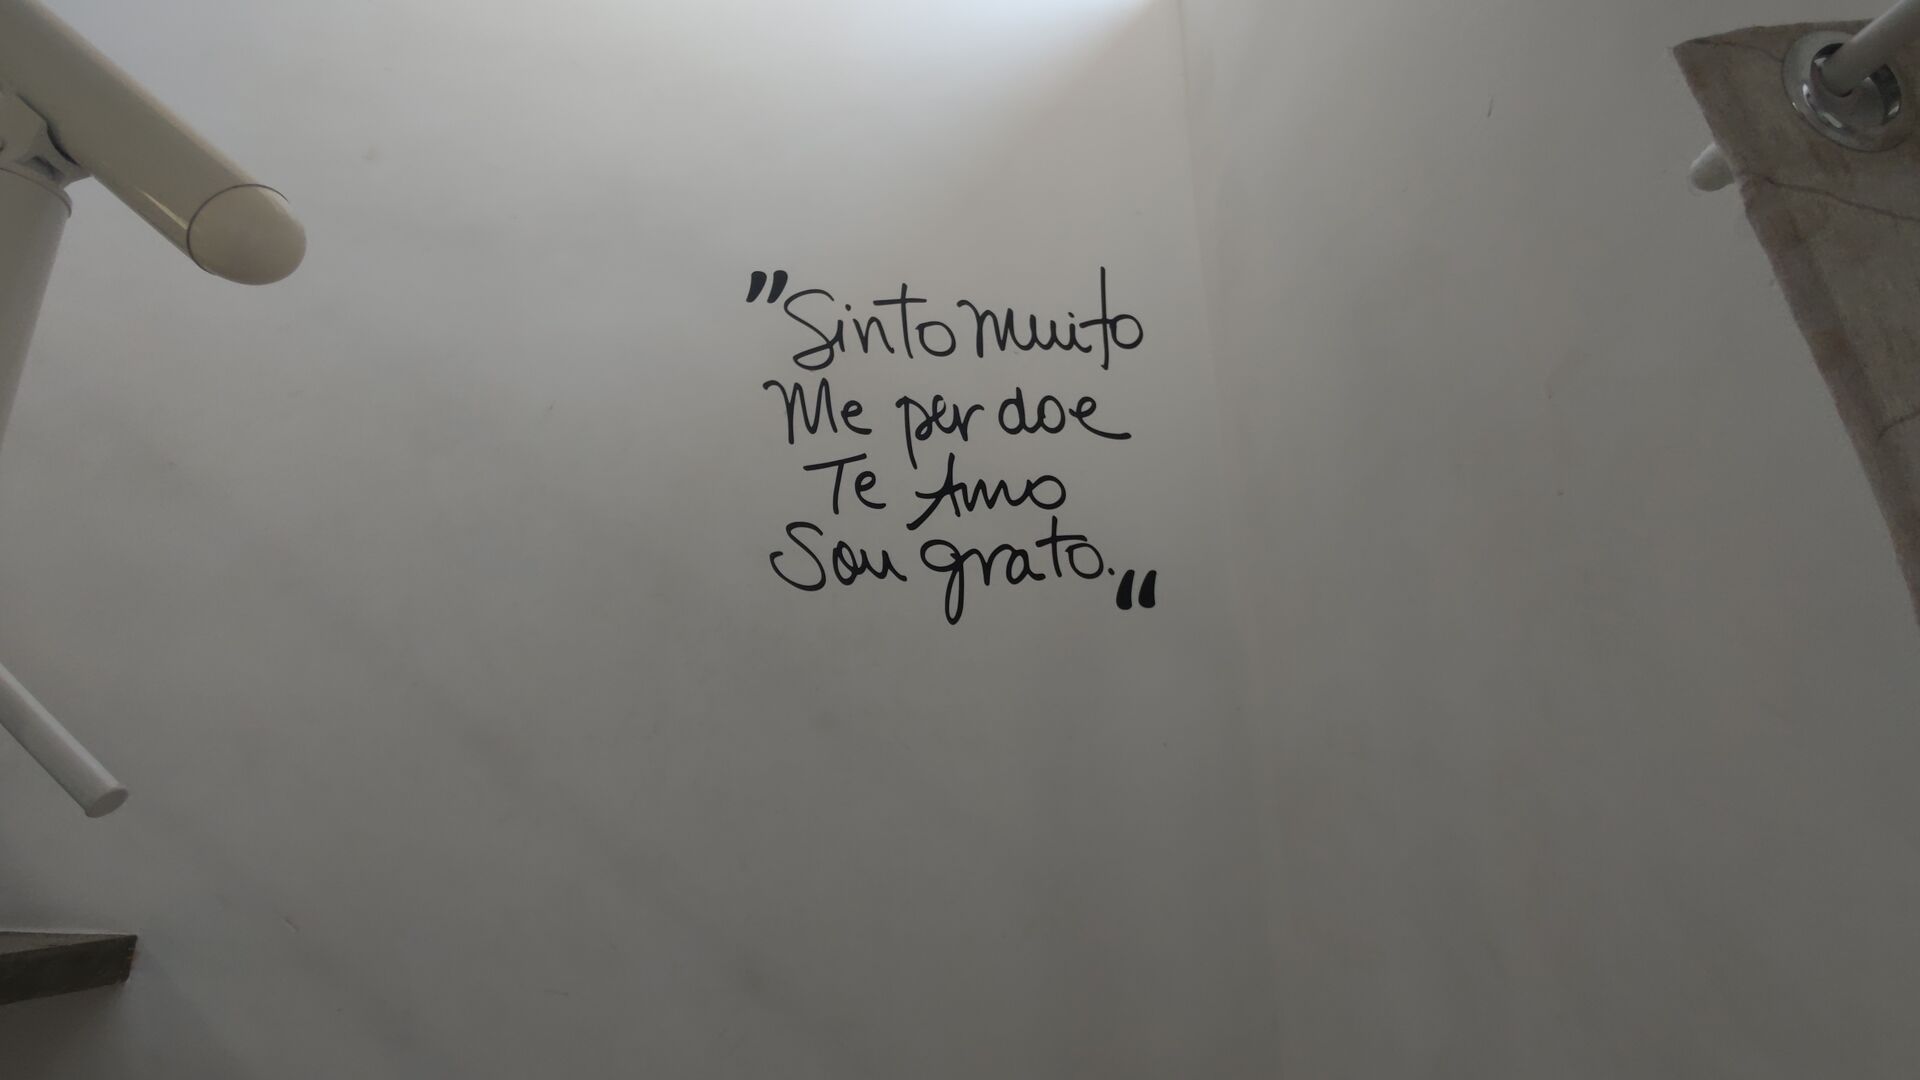 "Sinto muito
Me perdoe
Te Amo
Sou grato."